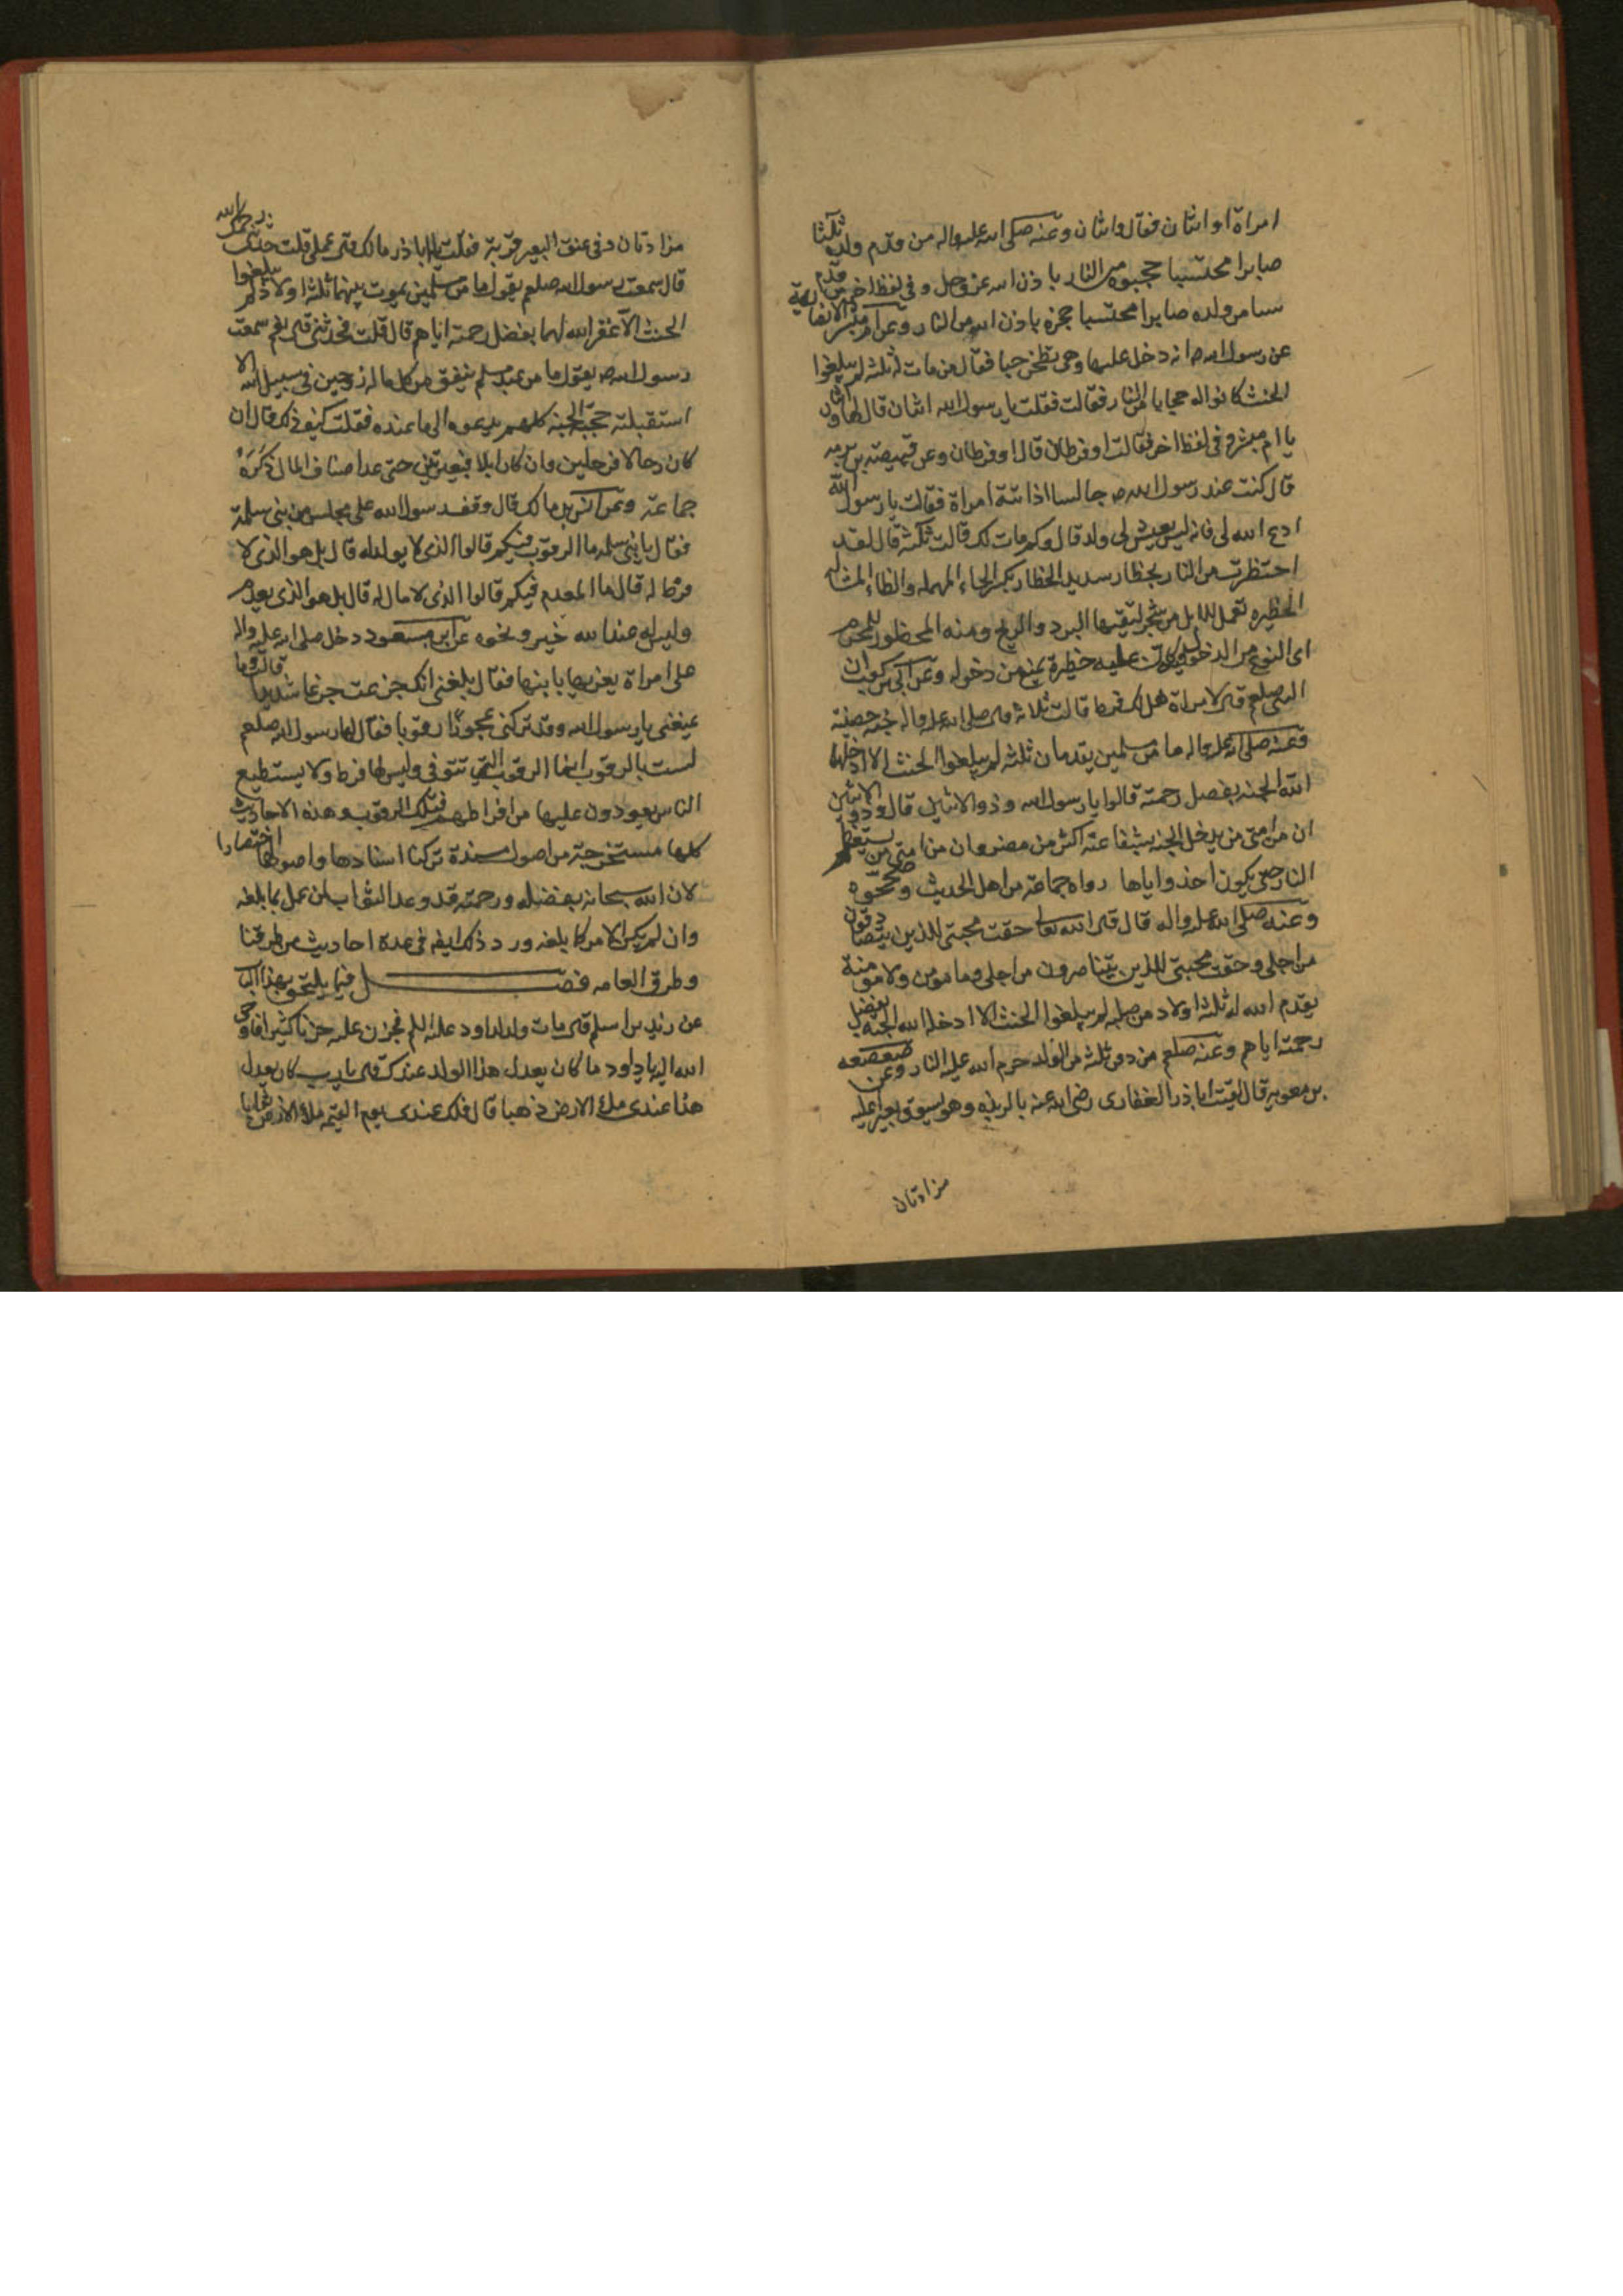 امراة او اثنان فقال واثنان وعنه صلى الله عليه واله من قدم ولد ثلثا
صابرا محتسبا حجبوه من النار باذن الله عز وجل وفي لفظ اخر من قدم
سيا من ولده صابرا محتسبا حجزه باذن الله من النار وعن ام مبشر الانصارية
عن رسول الله ص انه دخل عليها وهي تطبخ حيا فقال من مات له ثلثة لم يبلغوا
الحنث كانوا له حجابا من النار فقالت فقلت يا رسول الله اثنان قال لها واثنان
يا ام مبشر وفي لفظ اخر فقالت او فرطان قال او فرطان وعن قبيصة بن برمه
قال كنت عند رسول الله ص جالسا اذ اتته امراة فقالت يا رسول الله
ادع الله لي فانه ليس يعيش لي ولد قال وكم مات لك قالت ثلثة قال لقد
احتظرت من النار بحظار سديد الحظار بكسر الحاء المهمله والظاء المشاله
الحظيره تعمل للابل من شجر لتقيها البرد والريح ومنه المحظور للمحرم
اى المنوع من الدخول عليه كان عليه حظيرة تمنع من دخوله وعن ابي بن كعب ان
النبي صلعم قال لامراة هل لك فرط قالت ثلاثة قال صلى الله عليه واله جنة حصينة
وعنه صلى الله عليه واله ما من مسلمين يقدمان ثلثة لم يبلغوا الحنث الا ادخلهما
الله الجنه بفضل رحمته قالوا يا رسول الله وذو الاثنين قال وذو الاثنين
ان من امتى من يدخل الجنه بشفاعته اكثر من مضر وان من امتى من يستعظم
النار حتى يكون احد زواياها رواه جماعة من اهل الحديث وصححوه
وعنه صلى الله عليه واله قال قال الله تعالى حقت محبتي للذين يتصادقون
من اجلي وحقت محبتي للذين يتناصرون من اجلي وما مؤمن ولا مومنة
يقدم الله له ثلثة اولاد من صلبه لم يبلغوا الحنث الا ادخله الله الجنه بفضل
رحمته اياهم وعنه صلعم من دفن ثلثة من الولد حرم الله عليه النار وعن صعصعه
بن معويه قال لقيت اباذر الغفاري رضى الله عنه بالربذه وهو يسوق بعيرا عليه
مزادتان
مزادتان وفي عنق البعير قربة فقلت يا اباذر مالك قال عملي قلت حدثني رحمك الله
قال سمعت رسول الله صلعم يقول ما من مسلمين يموت بينهما ثلثة اولاد لم يبلغوا
الحنث الا غفر الله لهما بفضل رحمته اياهم قال قلت فحدثني قال نعم سمعت
رسول الله ص يقول ما من عبد مسلم ينفق من كل ماله زوجين في سبيل الله الا
استقبلته حجبة الجنة كلهم يدعوه الى ما عنده فقلت كيف ذلك قال ان
كان رحالا فرحلين وان كان ابلا فبعيرتين حتى عد اصناف المال ذكره
جماعة وعن انس بن مالك قال وقف رسول الله على مجلس من بني سلمة
فقال يا بني سلمه ما الرقوب فيكم قالوا الذي لا يولد له قال بل هو الذي لا
فرط له قال ما المعدم فيكم قالوا الذي لا مال له قال بل هو الذي يقدم
وليس له عند الله خير ونحوه عن ابن مسعود دخل صلى الله عليه واله
على امراة يعزيها بابنها فقال بلغني انك جزعت جزعا شديدا قالت وما
يمنعني يا رسول الله وقد تركني عجوزا رقوبا فقال لها رسول الله صلعم
لست بالرقوب انما الرقوب التي تتوفى وليس لها فرط ولا يستطيع
الناس يعودون عليها من افراطهم فتلك الرقوب وهذه الاحاديث
كلها مستخرجة من اصول مسندة تركنا اسنادها واصولها اختصارا
لان الله سبحانه بفضله ورحمته قد وعد الثواب لمن عمل بما بلغه
وان لم يكن الامر كما بلغه ورد ذلك ايضه في عدة احاديث من طرقنا
وطرق العامه فصــــل فيما يلتحق بهذا الباب
عن زيد بن اسلم قال مات ولد لداود عليه السلم فحزن عليه حزنا كثيرا فاوحى
الله اليه يا داود ما كان يعدل هذا الولد عندك قال يا رب كان يعدل
هذا عندي ملء الارض ذهبا قال فلك عندي يوم القيمه ملء الارض ثوابا